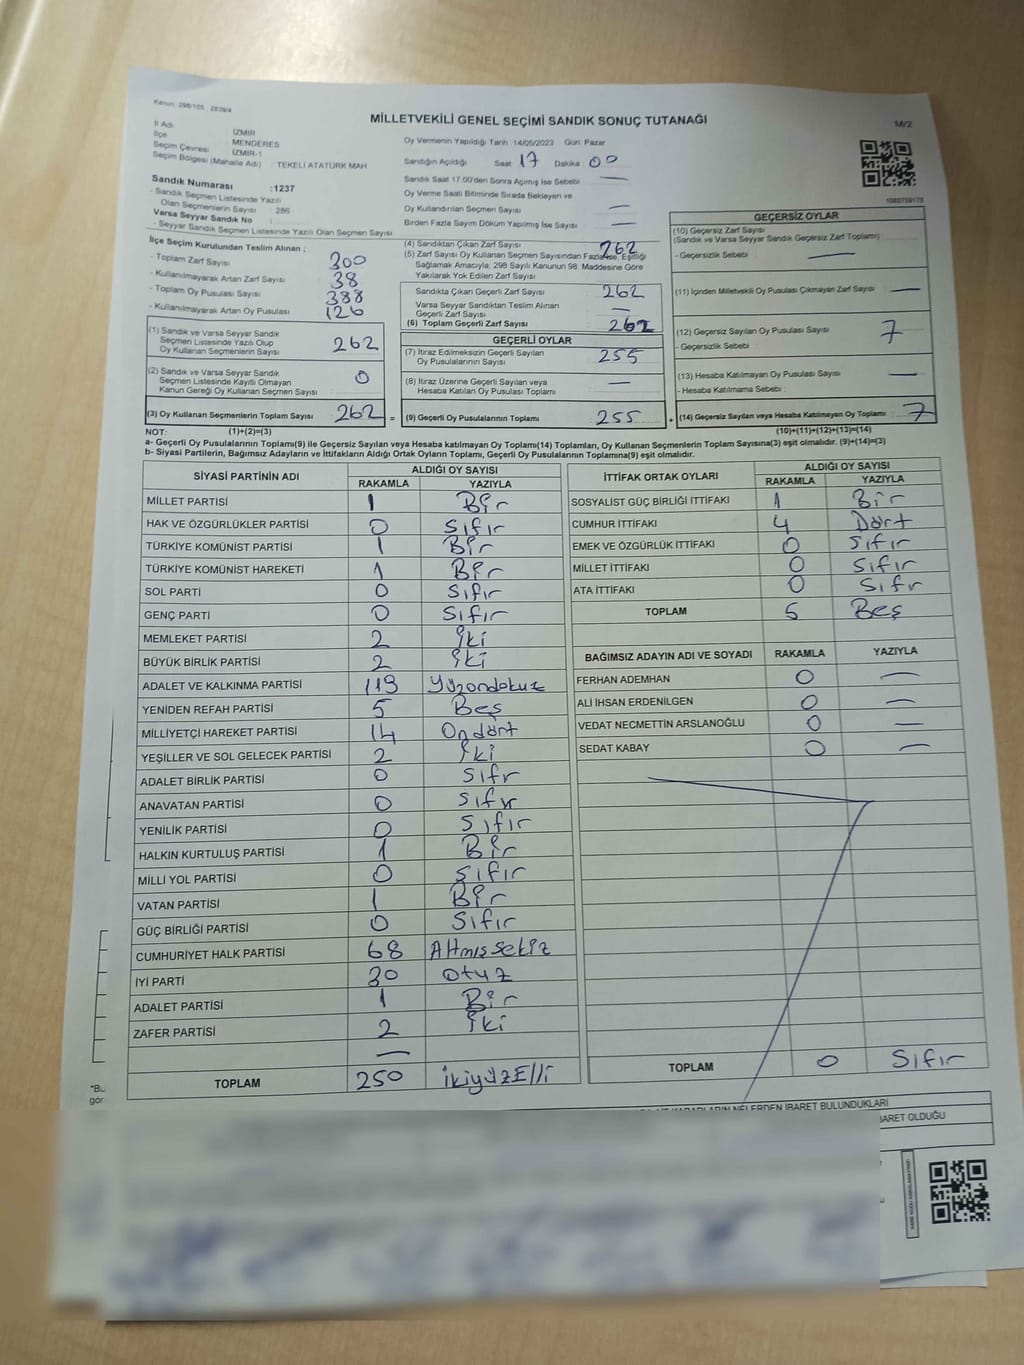 Kanun: 298/105 2839/4
MİLLETVEKİLİ GENEL SEÇİMİ SANDIK SONUÇ TUTANAĞI
M/2
İl Adı : İZMİR
İlçe : MENDERES
Seçim Çevresi : İZMİR-1
Seçim Bölgesi (Mahalle Adı) : TEKELİ ATATÜRK MAH
Oy Vermenin Yapıldığı Tarih 14/05/2023 Gün: Pazar
Sandığın Açıldığı Saat 17 Dakika 00
Sandık Saat 17:00'den Sonra Açmış İse Sebebi —
Oy Verme Saati Bitiminde Sırada Bekleyen ve
Oy Kullandırılan Seçmen Sayısı —
Birden Fazla Sayım Döküm Yapılmış İse Sayısı —
Sandık Numarası : 1237
- Sandık Seçmen Listesinde Yazılı
Olan Seçmenlerin Sayısı 286
Varsa Seyyar Sandık No :
- Seyyar Sandık Seçmen Listesinde Yazılı Olan Seçmen Sayısı
İlçe Seçim Kurulundan Teslim Alınan ;
- Toplam Zarf Sayısı 300
- Kullanılmayarak Artan Zarf Sayısı 38
- Toplam Oy Pusulası Sayısı 388
- Kullanılmayarak Artan Oy Pusulası 126
(1) Sandık ve Varsa Seyyar Sandık
Seçmen Listesinde Yazılı Olup
Oy Kullanan Seçmenlerin Sayısı 262
(2) Sandık ve Varsa Seyyar Sandık
Seçmen Listesinde Kayıtlı Olmayan
Kanun Gereği Oy Kullanan Seçmen Sayısı 0
(3) Oy Kullanan Seçmenlerin Toplam Sayısı 262 =
(4) Sandıktan Çıkan Zarf Sayısı 262
(5) Zarf Sayısı Oy Kullanan Seçmen Sayısından Fazla ise, Eşitliği
Sağlamak Amacıyla, 298 Sayılı Kanunun 98. Maddesine Göre
Yakılarak Yok Edilen Zarf Sayısı
Sandıkta Çıkan Geçerli Zarf Sayısı 262
Varsa Seyyar Sandıktan Teslim Alınan
Geçerli Zarf Sayısı —
(6) Toplam Geçerli Zarf Sayısı 262
GEÇERLİ OYLAR
(7) İtiraz Edilmeksizin Geçerli Sayılan
Oy Pusulalarının Sayısı 255
(8) İtiraz Üzerine Geçerli Sayılan veya
Hesaba Katılan Oy Pusulası Toplamı —
(9) Geçerli Oy Pusulalarının Toplamı 255 +
1083759178
GEÇERSİZ OYLAR
(10) Geçersiz Zarf Sayısı
(Sandık ve Varsa Seyyar Sandık Geçersiz Zarf Toplamı)
- Geçersizlik Sebebi : —
(11) İçinden Milletvekili Oy Pusulası Çıkmayan Zarf Sayısı —
(12) Geçersiz Sayılan Oy Pusulası Sayısı 7
- Geçersizlik Sebebi :
(13) Hesaba Katılmayan Oy Pusulası Sayısı —
- Hesaba Katılmama Sebebi :
(14) Geçersiz Sayılan veya Hesaba Katılmayan Oy Toplamı 7
NOT: (1)+(2)=(3) (10)+(11)+(12)+(13)=(14)
a- Geçerli Oy Pusulalarının Toplamı(9) ile Geçersiz Sayılan veya Hesaba katılmayan Oy Toplamı(14) Toplamları, Oy Kullanan Seçmenlerin Toplam Sayısına(3) eşit olmalıdır. (9)+(14)=(3)
b- Siyasi Partilerin, Bağımsız Adayların ve İttifakların Aldığı Ortak Oyların Toplamı, Geçerli Oy Pusulalarının Toplamına(9) eşit olmalıdır.
SİYASİ PARTİNİN ADI ALDIĞI OY SAYISI
RAKAMLA YAZIYLA
MİLLET PARTİSİ 1 Bir
HAK VE ÖZGÜRLÜKLER PARTİSİ 0 Sıfır
TÜRKİYE KOMÜNİST PARTİSİ 1 Bir
TÜRKİYE KOMÜNİST HAREKETİ 1 Bir
SOL PARTİ 0 Sıfır
GENÇ PARTİ 0 Sıfır
MEMLEKET PARTİSİ 2 İki
BÜYÜK BİRLİK PARTİSİ 2 İki
ADALET VE KALKINMA PARTİSİ 119 Yüzondokuz
YENİDEN REFAH PARTİSİ 5 Beş
MİLLİYETÇİ HAREKET PARTİSİ 14 Ondört
YEŞİLLER VE SOL GELECEK PARTİSİ 2 İki
ADALET BİRLİK PARTİSİ 0 Sıfr
ANAVATAN PARTİSİ 0 Sıfır
YENİLİK PARTİSİ 0 Sıfır
HALKIN KURTULUŞ PARTİSİ 1 Bir
MİLLİ YOL PARTİSİ 0 Sıfır
VATAN PARTİSİ 1 Bir
GÜÇ BİRLİĞİ PARTİSİ 0 Sıfır
CUMHURİYET HALK PARTİSİ 68 Altmışsekiz
İYİ PARTİ 30 Otuz
ADALET PARTİSİ 1 Bir
ZAFER PARTİSİ 2 İki
—
TOPLAM 250 ikiyüzElli
İTTİFAK ORTAK OYLARI ALDIĞI OY SAYISI
RAKAMLA YAZIYLA
SOSYALİST GÜÇ BİRLİĞİ İTTİFAKI 1 Bir
CUMHUR İTTİFAKI 4 Dört
EMEK VE ÖZGÜRLÜK İTTİFAKI 0 Sıfır
MİLLET İTTİFAKI 0 Sıfır
ATA İTTİFAKI 0 Sıfr
TOPLAM 5 Beş
BAĞIMSIZ ADAYIN ADI VE SOYADI RAKAMLA YAZIYLA
FERHAN ADEMHAN 0 —
ALİ İHSAN ERDENİLGEN 0 —
VEDAT NECMETTİN ARSLANOĞLU 0 —
SEDAT KABAY 0 —
TOPLAM 0 Sıfır
"Bu
gör
KARARLARIN NELERDEN İBARET BULUNDUKLARI
İBARET OLDUĞU